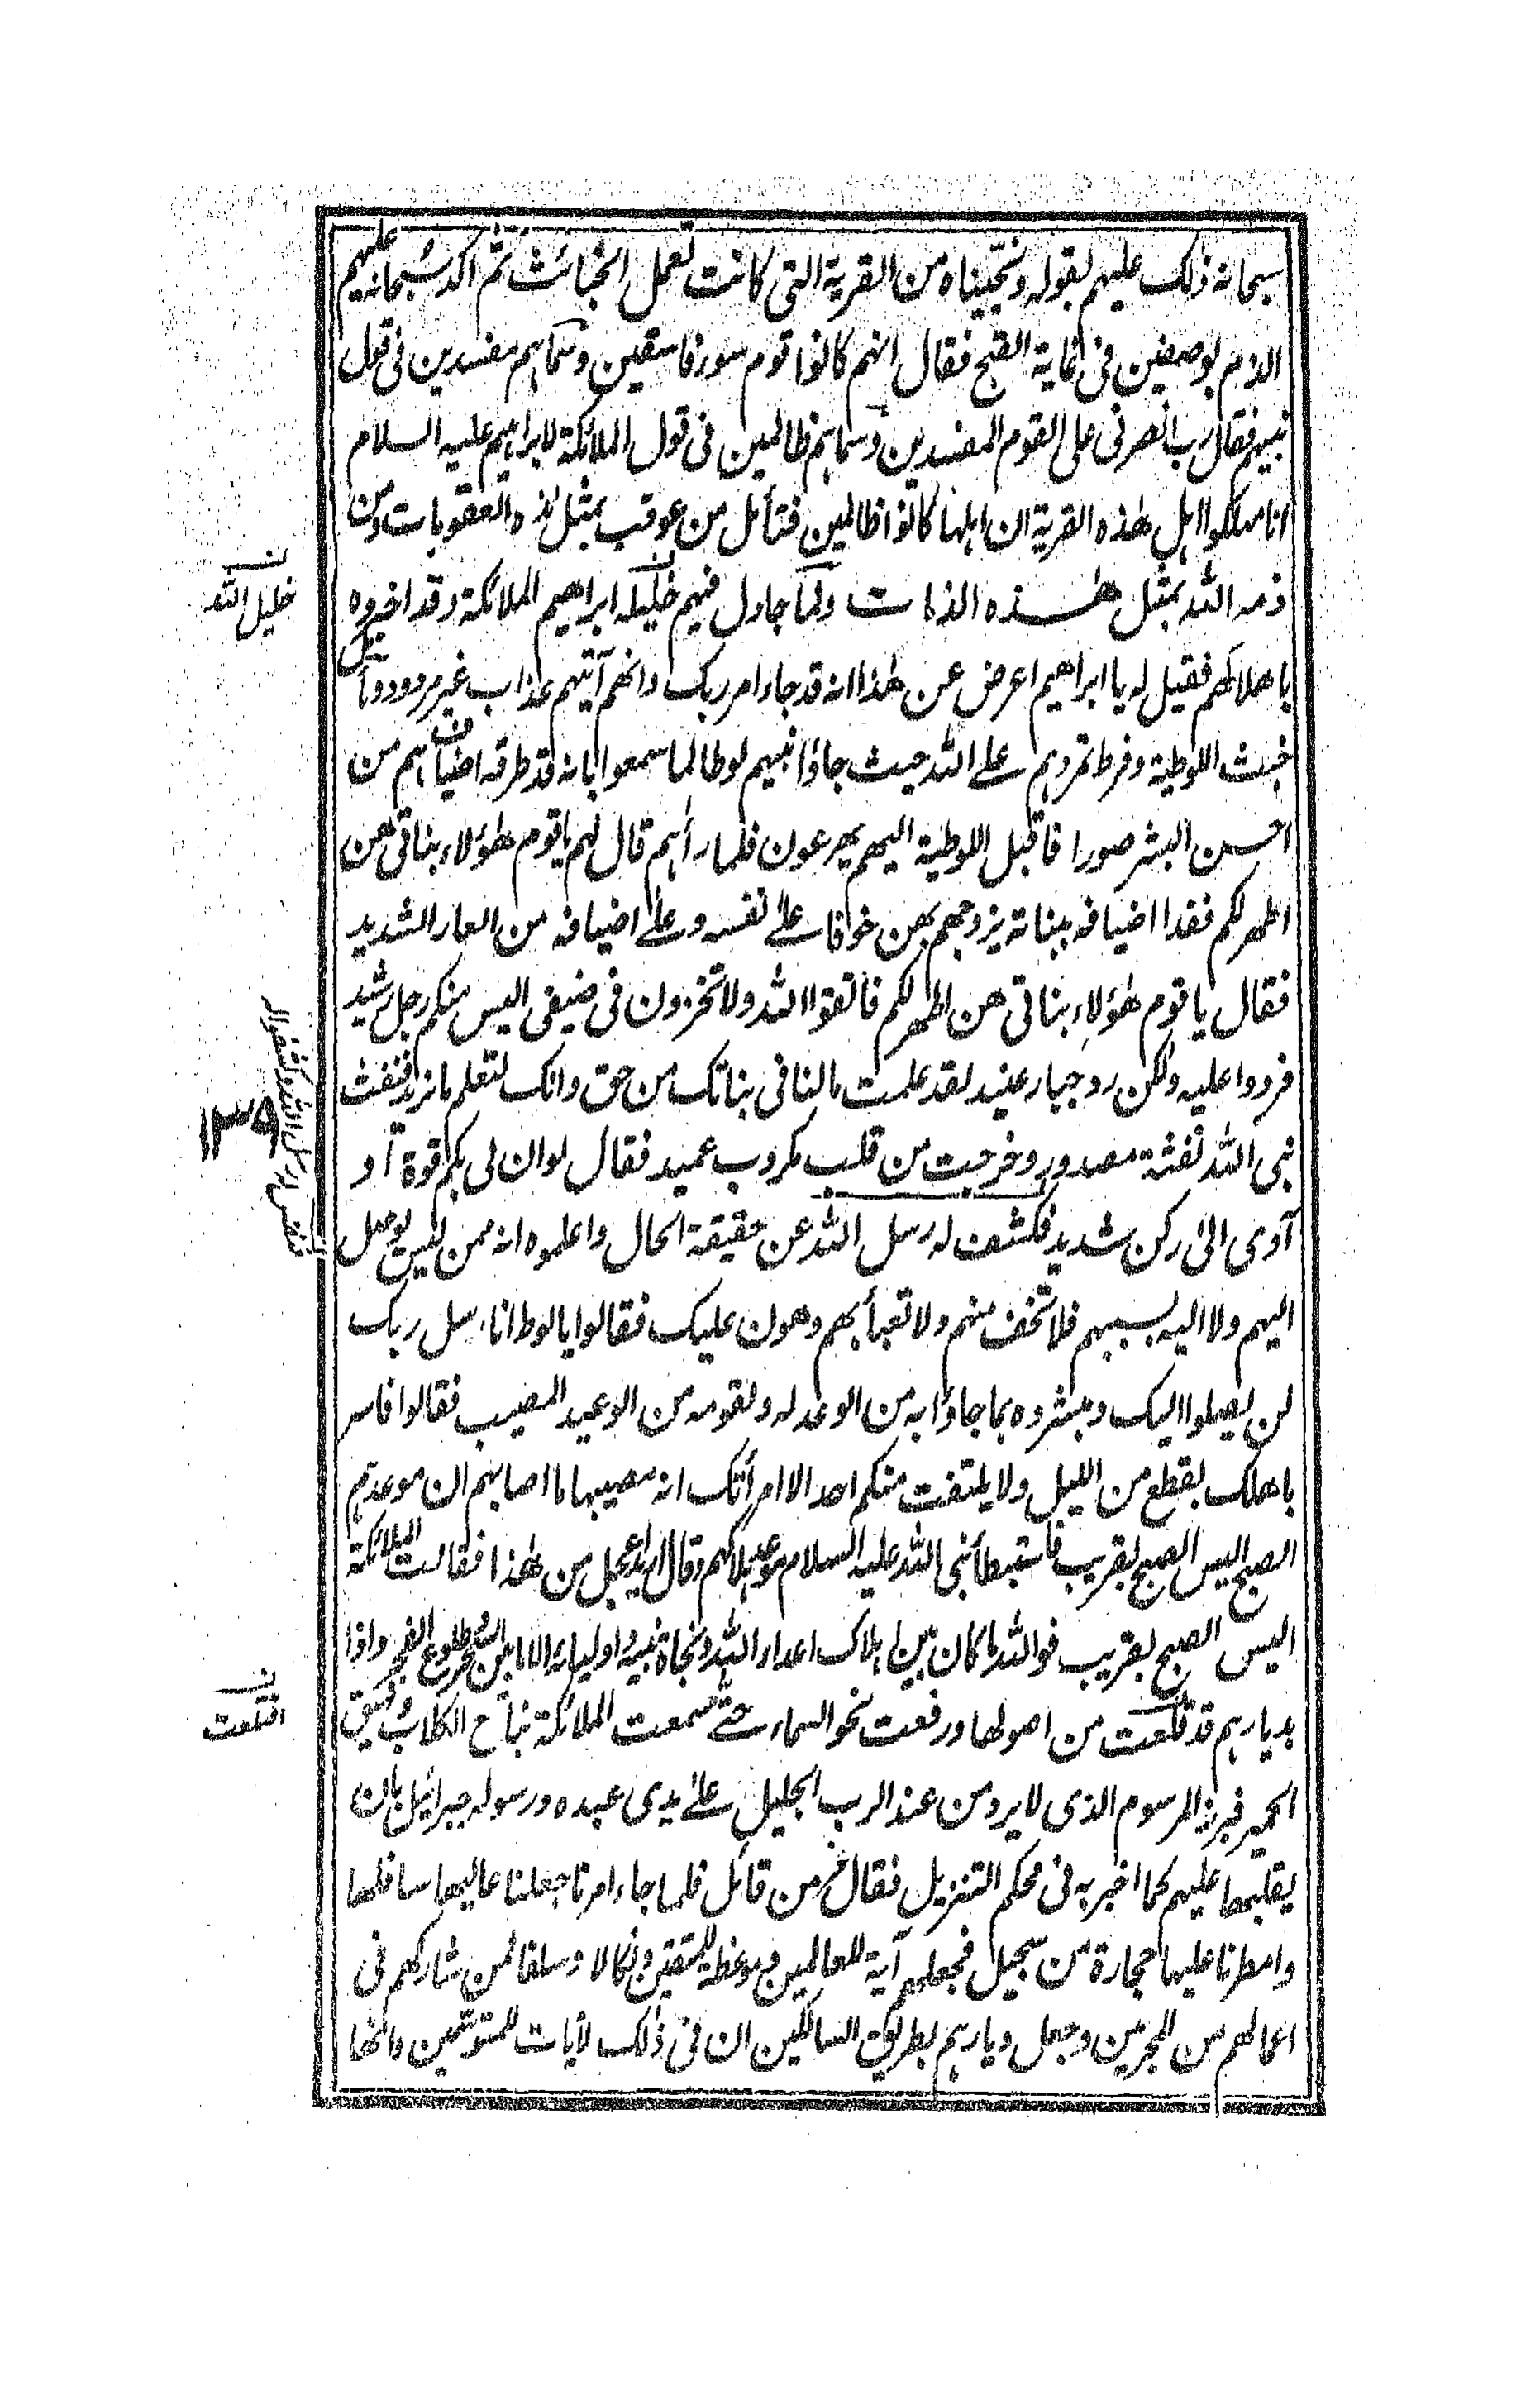 سبحانه ذلك عليهم بقوله ونجّيناه من القرية التى كانت تعمل الخبائث ثمّ اكد سُبحانه عليهم
الذم بوصفين فى غاية القبح فقال انهم كانوا قوم سوء فاسقين وسماهم مفسدين فى قول
نبيهم فقال رب انصرنى على القوم المفسدين وسماهم ظالمين فى قول الملائكة لابراهيم عليه السلام
انا مهلكوا اهل هٰذه القرية ان اهلها كانوا ظالمين فتأمل من عوقب بمثل هذه العقوبات ومن
ذمه الله بمثل هٰذه الذمات ولما جادل فيهم خليله ابراهيم الملائكة وقد اخبروه
باهلاكهم فقيل له يا ابراهيم اعرض عن هٰذا انه قد جاء امر ربك وانهم آتيهم عذاب غير مردود وتأمل
خبث اللوطية وفرط تمردهم علے الله حيث جاؤا نبيهم لوطا لما سمعوا بانه قد طرقه اضياف هم من
احسن البشر صورا فاقبل اللوطية اليهم يهرعون فلما رأهم قال لهم يا قوم هٰؤلاء بناتى هن
اطهر لكم ففدا اضيافه ببناته يزوجهم بهن خوفا علےٰ نفسه وعلےٰ اضيافه من العار الشديد
فقال يا قوم هٰؤلاءِ بناتى هن اطهر لكم فاتقوا الله ولا تخزون فى ضيفى اليس منكم رجل رشيد
فردوا عليه ولكن رد جبار عنيد لقد علمت مالنا فى بناتك من حق وانك لتعلم ما نريد فنفث
نبى الله نفثة مصدور وخرجت من قلب مكروب عميد فقال لو ان لى بكم قوة أو
آوى الىٰ ركن شديد فكشف له رسل الله عن حقيقة الحال واعلموه انه ممن ليس يوصل
اليهم ولا اليه بسببهم فلا تخف منهم ولا تعبأ بهم وهون عليك فقالوا يا لوط انا رسل ربك
لن يصلوا اليك وبشروه بما جاؤا به من الوعد له ولقومه من الوعيد المصيب فقالوا فاسر
باهلك بقطع من الليل ولا يلتفت منكم احد الا امرأتك انه مصيبها ما اصابهم ان موعدهم
الصبح اليس الصبح بقريب فاستبطأ نبى الله عليه السلام موعد هلاكهم وقال اريد اعجل من هٰذا فقالت الملائكة
اليس الصبح بقريب فو الله ما كان بين اهلاك اعداء الله ونجاة نبيه واوليائه الا ما بين السحر وطلوع الفجر واذا
بديارهم قد قلعت من اصولها ورفعت نحو السماء حتےٰ سمعت الملائكة نباح الكلاب ونهيق
الحمير فبرز المرسوم الذى لا يرد من عند الرب الجليل علےٰ يدى عبده ورسوله جبرائيل بان
يقلبها عليهم كما اخبر به فى محكم التنزيل فقال عز من قائل فلما جاء امرنا جعلنا عاليها سافلها
وامطرنا عليها حجارة من سجيل فجعلهم آية للعالمين وموعظة للمتقين ونكالا وسلفا لمن شاركهم فى
اعمالهم من المجرمين وجعل ديارهم بطريق السالكين ان فى ذٰلك لأيات للمتوسمين وانها
خليل الله
١٣٩
اقتلعت